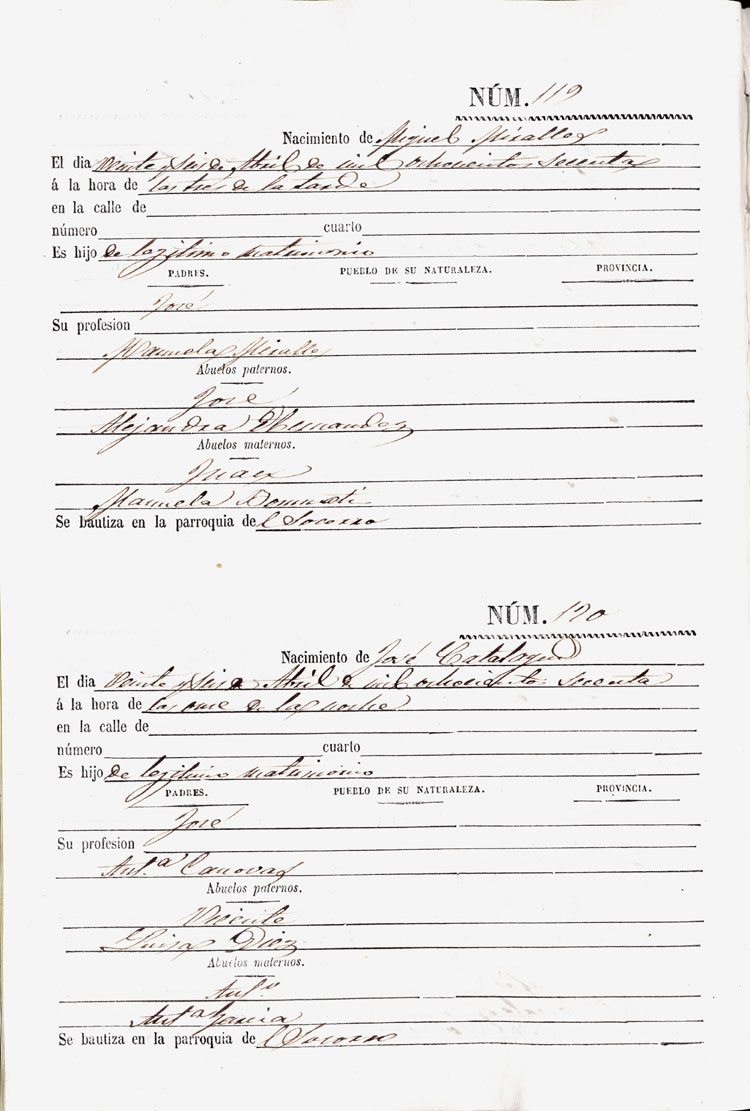 NÚM. 119
Nacimiento de Miguel Miralles
El dia Veinte y seis de Abril de mil ochocientos sesenta
á la hora de las tres de la tarde
en la calle de
número cuarto
Es hijo de legitimo matrimonio
PADRES. PUEBLO DE SU NATURALEZA. PROVINCIA.
José
Su profesion
Manuela Miralles
Abuelos paternos.
José
Alejandra Hernandez
Abuelos maternos.
Juan
Manuela
Se bautiza en la parroquia del Socorro
NÚM. 120
Nacimiento de José
El dia Veinte y seis de Abril de mil ochocientos sesenta
á la hora de las once de la noche
en la calle de
número cuarto
Es hijo de legitimo matrimonio
PADRES. PUEBLO DE SU NATURALEZA. PROVINCIA.
José
Su profesion
Ant.ª Canovas
Abuelos paternos.
Vicente
Luisa Diez
Abuelos maternos.
Ant.º
Ant.ª Garcia
Se bautiza en la parroquia del Socorro